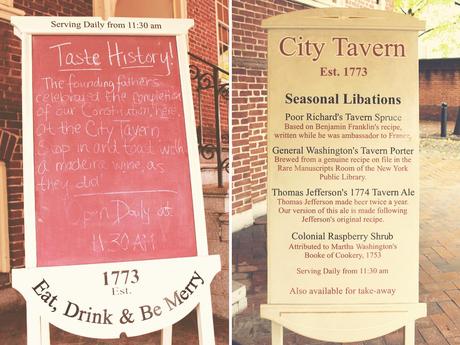 Serving Daily from 11:30 am
Taste History!
The founding fathers
celebrated the completion
of our Constitution, here,
at the City Tavern.
Stop in and toast with
a madeira wine, as
they did.
Open Daily at
11:30 AM
1773
Est.
Eat, Drink & Be Merry
City Tavern
Est. 1773
Seasonal Libations
Poor Richard's Tavern Spruce
Based on Benjamin Franklin's recipe,
written while he was ambassador to France.
General Washington's Tavern Porter
Brewed from a genuine recipe on file in the
Rare Manuscripts Room of the New York
Public Library.
Thomas Jefferson's 1774 Tavern Ale
Thomas Jefferson made beer twice a year.
Our version of this ale is made following
Jefferson's original recipe.
Colonial Raspberry Shrub
Attributed to Martha Washington's
Booke of Cookery, 1753
Serving Daily from 11:30 am
Also available for take-away